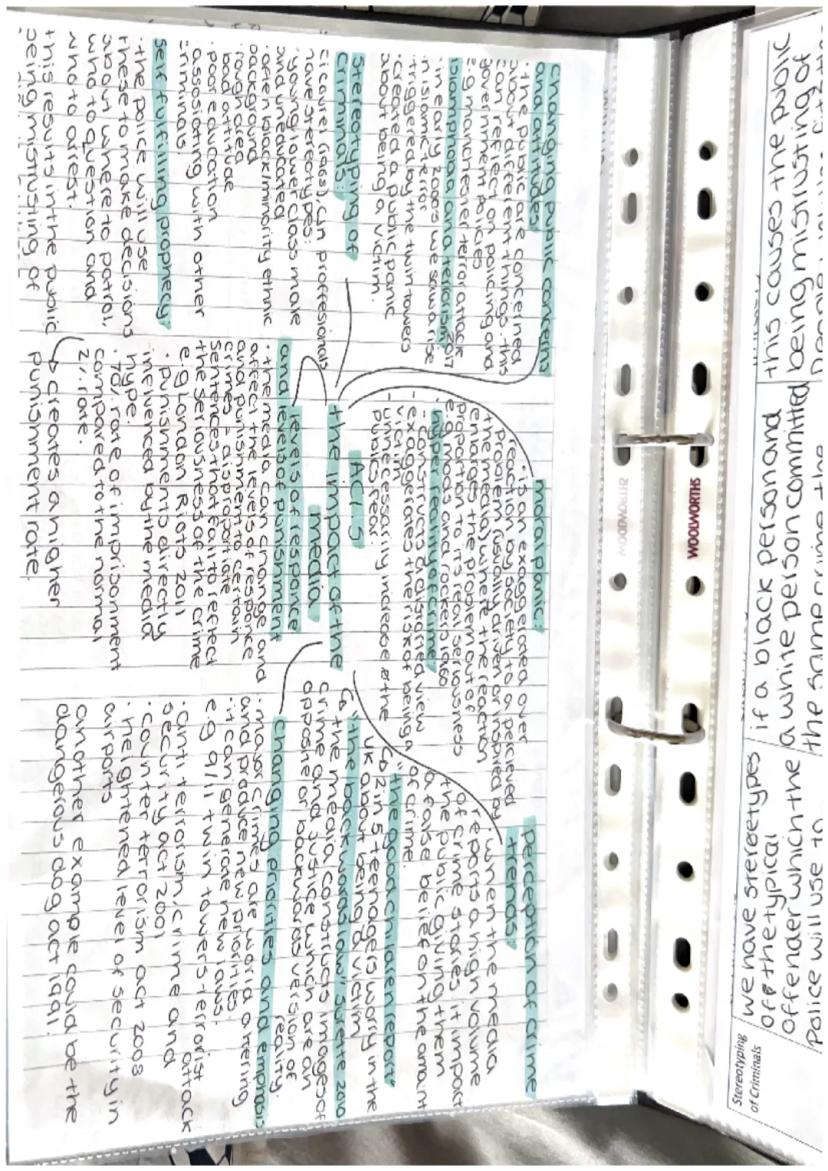 changing public concerns
and attitudes
· the public are concerned
about different things. this
can reflect on policing and
government policies
e.g manchester terror attack
2017
islamophobia and terrorism
· in early 2000s we saw a rise
in islamic terror
· triggered by the twin towers
· created a public panic
about being a victim.
Stereotyping of
criminals:
have stereotypes:
· young lower class male
and uneducated
· often black/minority ethnic
background
· rough area
· bad attitude
· poor education
· associating with other
criminals
self fulfilling prophecy
· the police will use
these to make decisions
about where to patrol,
who to question and
who to arrest.
this results in the public
being mistrusting of
moral panic:
· is an exaggerated over
reaction by society to a percieved
problem (usually driven or inspired by
the media) where the reaction
enlarges the problem out of
proportion to its real seriousness
e.g mods and rockers 1960
hyper reality of crime
- constructs a distorted view
- exaggerates the risk of being a
victim
- unnecessarily increase the
publics fear.
AC1.5
the impact of the
media
levels of response
and levels of punishment
· the media can change and
affect the levels of responce
and punishment to certain
crimes - disproportionate
sentences that fail to reflect
the seriousness of the crime
e.g London Riots 2011
· punishments directly
influenced by the media
hype.
· 70% rate of imprisonment
compared to the normal
2% rate.
↳ creates a higher
punishment rate.
perception of crime
trends:
· when the media
reports a high volume
of crime stories it impact
the public giving them
a false belief on the amount
of crime.
"the good children report
↳ 2 in 5 teenagers worry in the
UK about being a victim
"the backwards law" surette 2010
↳ the media constructs images of
crime and justice which are an
opposite or backwards version of
reality.
changing priorities and emphasis
· major crimes are world altering
and produce new priorities
· it can generate new laws.
e.g 9/11 twin towers terrorist
attack
· anti terrorism, crime and
security act 2001
· counter terrorism act 2008
· heightened level of security in
airports
another example could be the
dangerous dog act 1991.
WOOLWORTHS
this causes the public
being mistrusting of
if a black person and
a white person committed
the same crime the
we have stereotypes
off the typical
offender which the
Police will use to
Stereotyping
of Criminals